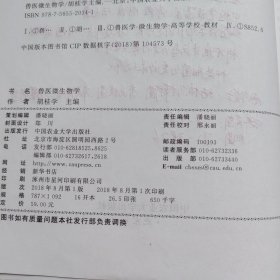 兽医微生物学/胡桂学主编.—北京:中国农业
ISBN 978-7-5655-2034-1
Ⅰ.①兽… Ⅱ.①胡… Ⅲ.①兽医学-微生物学-高等学校-教材 Ⅳ.①S852.6
中国版本图书馆 CIP 数据核字(2018)第 104573 号
书 名 兽医微生物学
作 者 胡桂学 主编
策划编辑 潘晓丽
责任编辑 潘晓丽
封面设计 郑 川
责任校对
出版发行 中国农业大学出版社
社 址 北京市海淀区圆明园西路 2 号
邮政编码 100193
电 话 发行部 010-62818525,8625
读者服务部 010-62732336
编辑部 010-62732617,2618
出 版 部 010-62733440
网 址
经 销 新华书店
印 刷 涿州市星河印刷有限公司
版 次 2018 年 8 月第 1 版 2018 年 8 月第 1 次印刷
规 格 787×1 092 16 开本 26.5 印张 650 千字
定 价 59.00 元
图书如有质量问题本社发行部负责调换